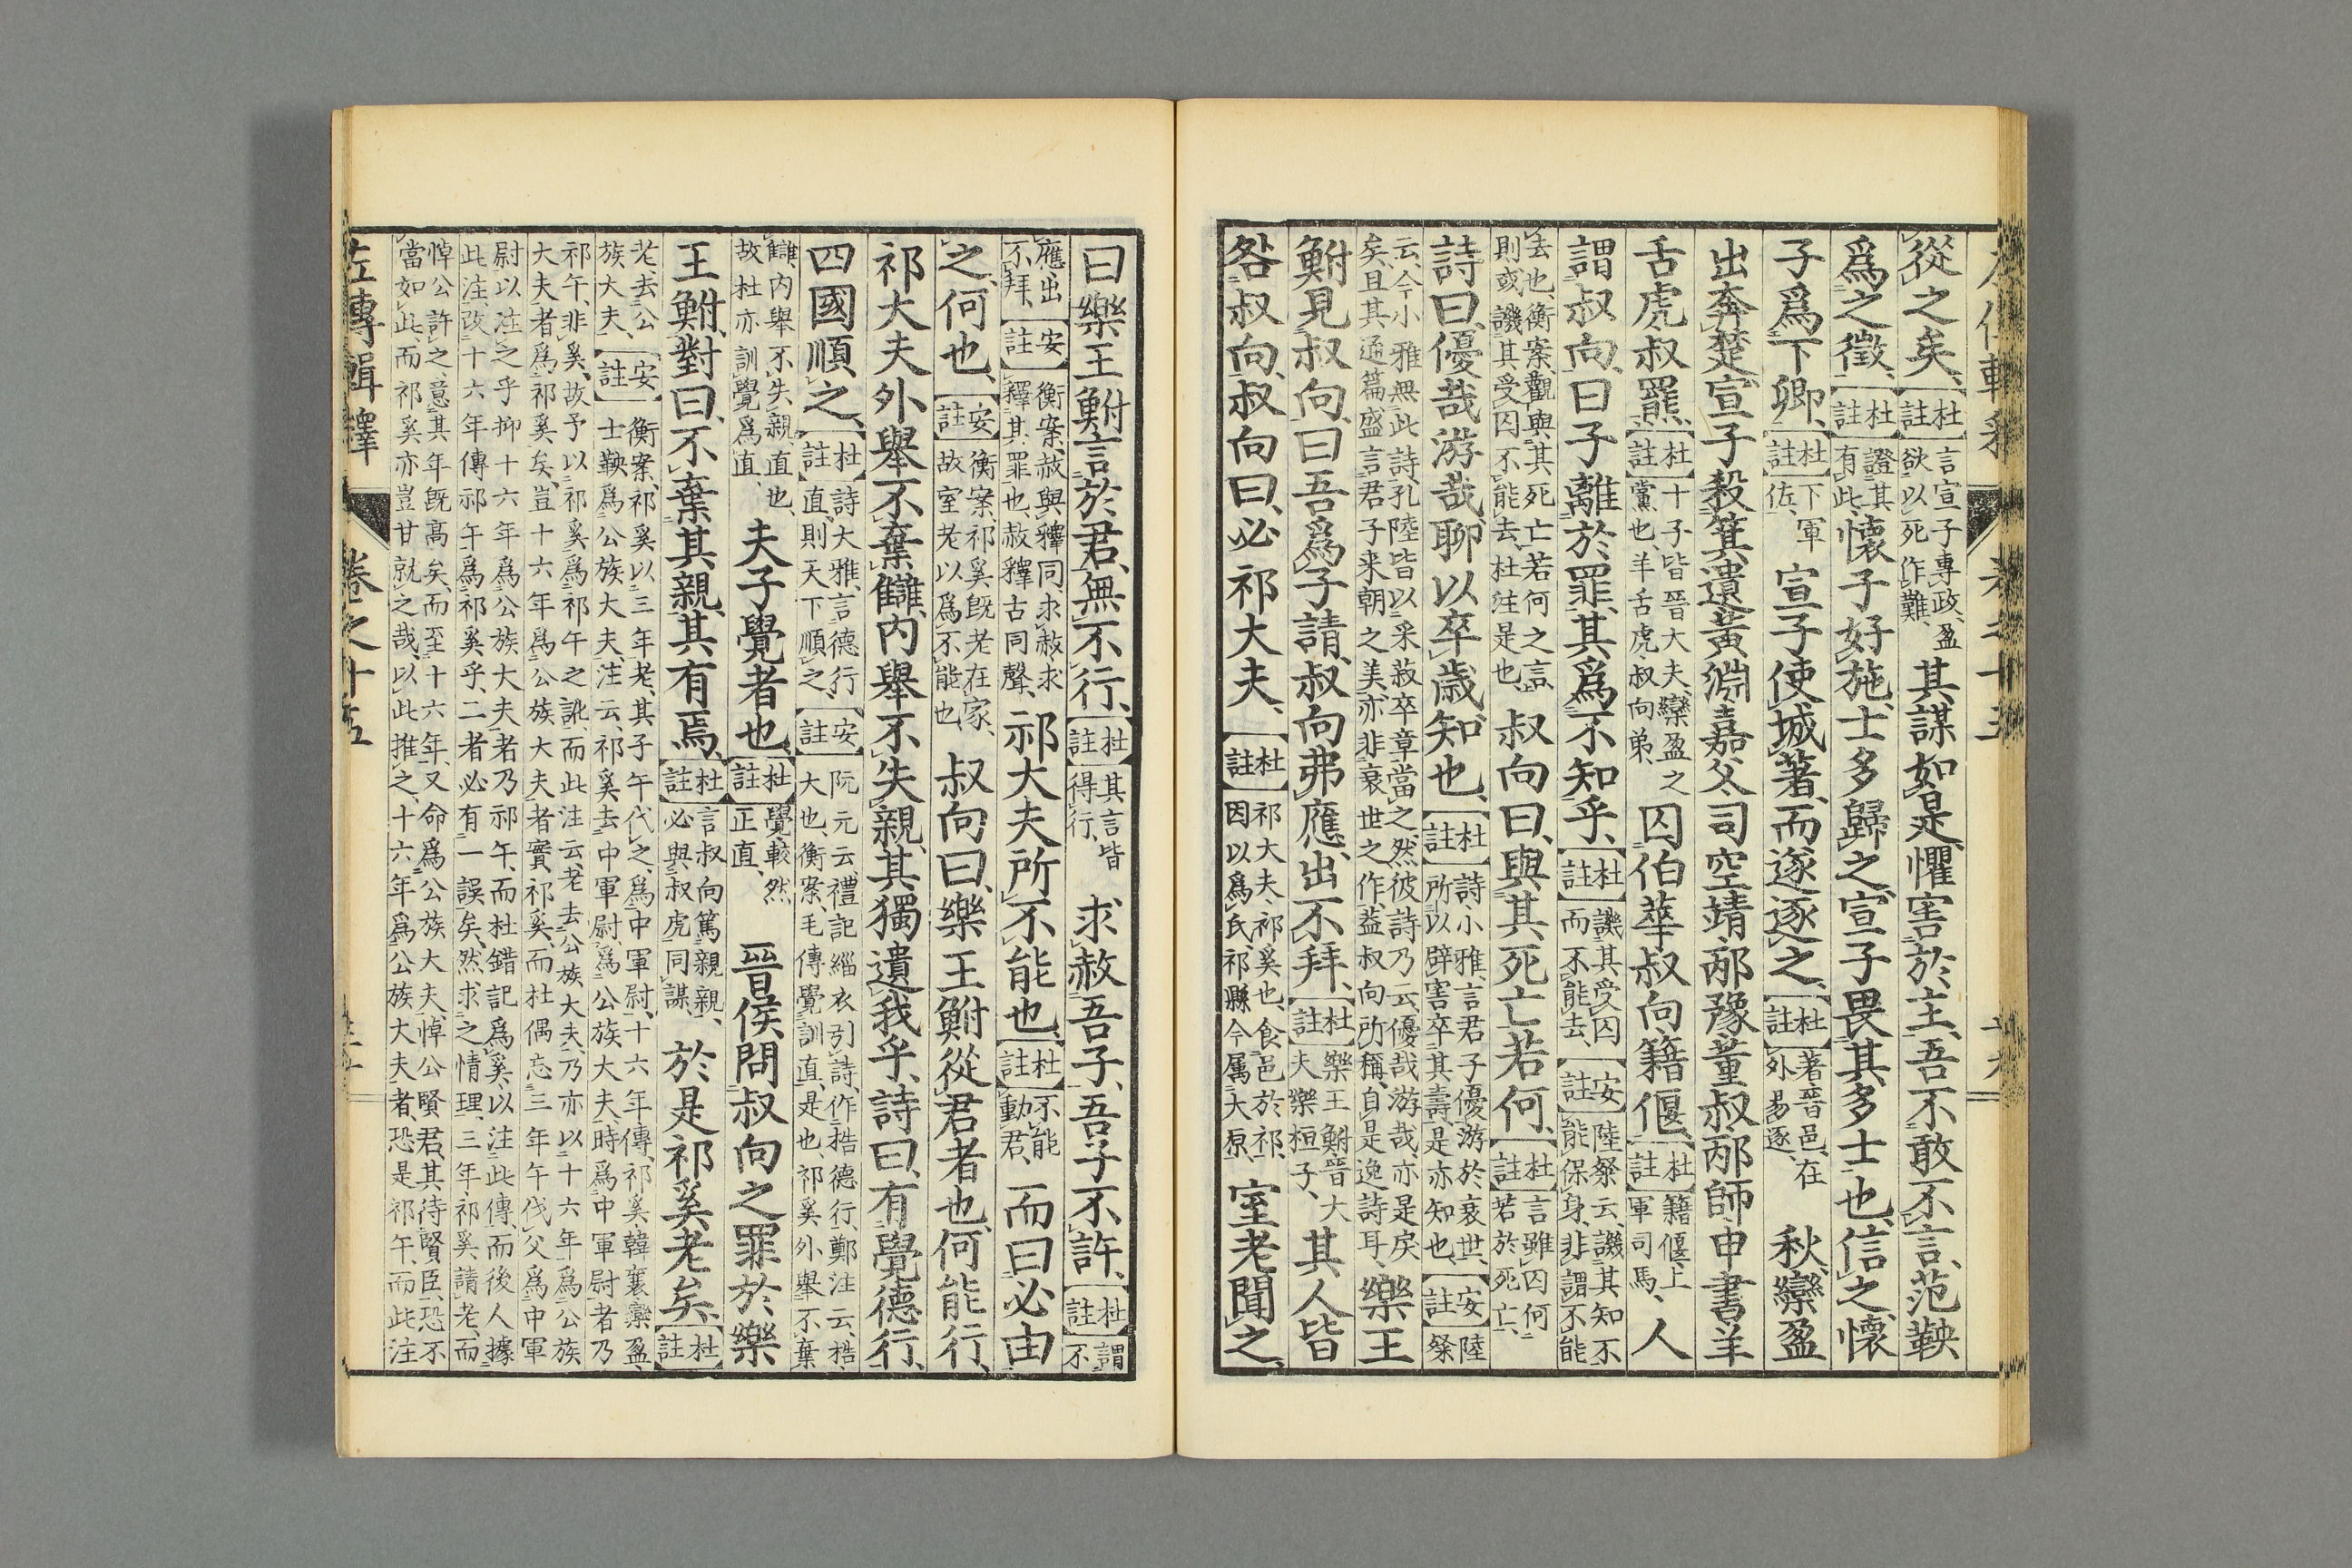 從之矣、【杜註】言宣子專政、盈欲以死作難、其謀如是、懼害於主、吾不敢不言、范鞅
爲之徵、【杜註】證其有此、懷子好施、士多歸之、宣子畏其多士也、信之、懷
子爲下卿、【杜註】下軍佐、宣子使城著、而逐逐之、【杜註】著晉邑、在外易逐、秋、欒盈
出奔楚、宣子殺箕遺黃淵嘉父司空靖邴豫董叔邴師申書羊
舌虎叔羆、【杜註】十子皆晉大夫、欒盈之黨也、羊舌虎、叔向弟、囚伯華叔向籍偃、【杜註】籍偃、上軍司馬、人
謂叔向曰、子離於罪、其爲不知乎、【杜註】譏其受囚而不能去、【安註】陸粲云、譏其知不能保身、非謂不能
去也、衡案、觀與其死亡若何之言、則或譏其受囚不能去、杜注是也、叔向曰、與其死亡若何、【杜註】言雖囚何若於死亡、
詩曰、優哉游哉、聊以卒歲、知也、【杜註】詩小雅、言君子優游於衰世、所以辟害卒其壽、是亦知也、【安註】陸粲
云、今小雅無此詩、孔陸皆以采菽卒章當之、然彼詩乃云、優哉游哉、亦是戾矣、且其通篇盛言君子来朝之美、亦非衰世之作、蓋叔向所稱、自是逸詩耳、樂王
鮒見叔向、曰、吾爲子請、叔向弗應、出、不拜、【杜註】樂王鮒晉大夫、樂桓子、其人皆
咎叔向、叔向曰、必祁大夫、【杜註】祁大夫、祁奚也、食邑於祁、因以爲氏、祁縣今属大原、室老聞之、
曰、樂王鮒言於君、無不行、【杜註】其言皆得行、求赦吾子、吾子不許、【杜註】謂不
應出不拜、【安註】衡案、赦與釋同、求赦、求釋其罪也、赦釋古同聲、祁大夫所不能也、【杜註】不能動君、而曰必由
之、何也、【安註】衡案、祁奚既老在家、故室老以爲不能也、叔向曰、樂王鮒從君者也、何能行、
祁大夫外舉不棄讎、内舉不失親、其獨遺我乎、詩曰、有覺德行、
四國順之、【杜註】詩大雅、言德行直、則天下順之、【安註】阮元云、禮記緇衣引詩、作梏德行、鄭注云、梏、大也、衡案、毛傳覺訓直、是也、祁奚外舉不棄
讎、内舉不失親、直也、故杜亦訓覺爲直、夫子覺者也、【杜註】覺、較然正直、晉侯問叔向之罪於樂
王鮒、對曰、不棄其親、其有焉、【杜註】言叔向篤親親、必與叔虎同謀、於是祁奚老矣、【杜註】
老去公族大夫、【安註】衡案、祁奚以三年老、其子午代之、爲中軍尉、十六年傳、祁奚韓襄欒盈、士鞅爲公族大夫、注云、祁奚去中軍尉、爲公族大夫、時爲中軍尉者乃
祁午、非奚、故予以祁奚爲祁午之訛、而此注云、老去公族大夫、乃亦以十六年爲公族大夫者爲祁奚矣、豈十六年爲公族大夫者實祁奚、而杜偶忘三年午代父爲中軍
尉以注之乎、抑十六年爲公族大夫者乃祁午、而杜錯記爲奚、以注此傳、而後人據此注、改十六年傳祁午爲祁奚乎、二者必有一誤矣、然求之情理、三年祁奚請老、而
悼公許之、意其年既高矣、而至十六年、又命爲公族大夫、悼公賢君、其待賢臣、恐不當如此、而祁奚亦豈甘就之哉、以此推之、十六年爲公族大夫者、恐是祁午、而此注
左傳輯釋 卷之十五